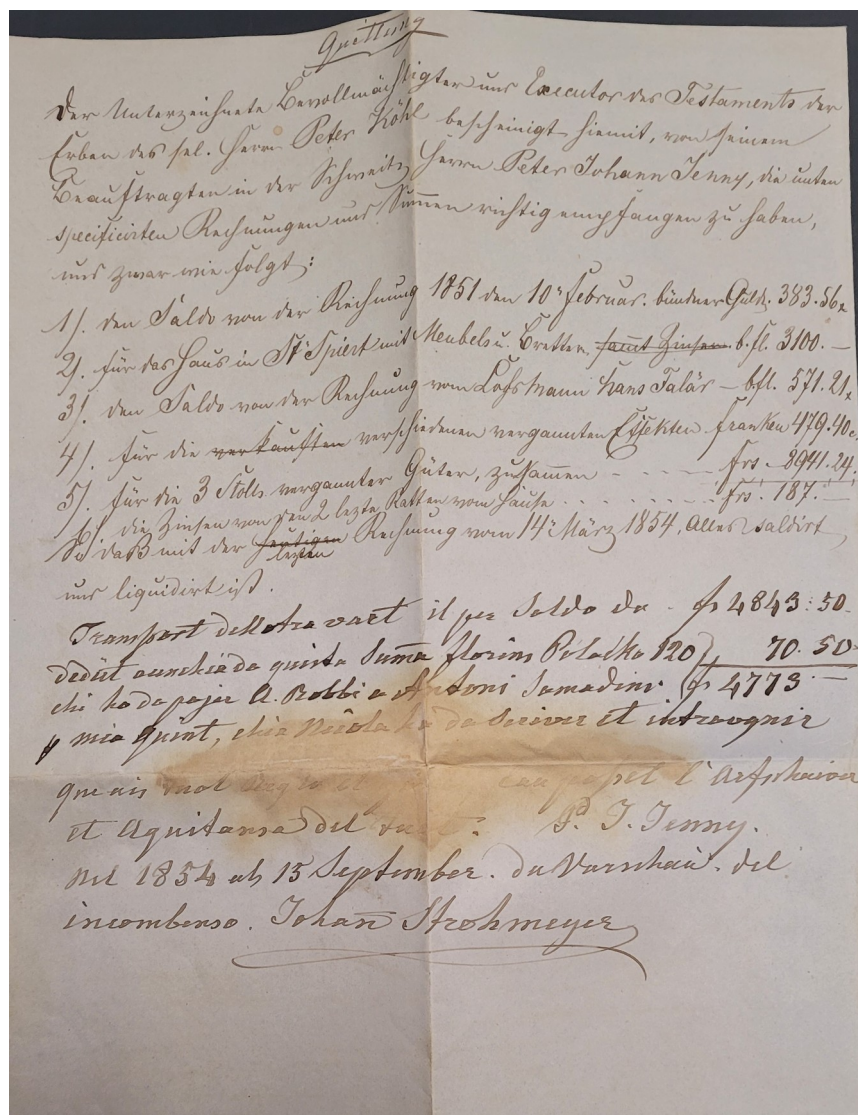 Quittung
Der Unterzeichnete Bevollmächtigter und Executor des Testaments der
Erben des sel. Herrn Peter Köhl bescheinigt hiemit, von seinem
Beauftragten in der Schweitz, Herrn Peter Johann Jenny, die unten
specificirten Rechnungen und Summen richtig empfangen zu haben,
und zwar wie folgt:
1). den Saldo von der Rechnung 1851 den 10ṇ Februar. bündner Guld. 383.56x
2). für das Haus in St Spiert mit Meubels u. Bretter sammt Zinsen b.fl. 3100.—
3). den Saldo von der Rechnung vom Hans Talär — bfl. 571.21x
4). für die verkauften verschiedenen vergannten Effekten franken 479.40c.
5). für die 3 Stolls verganter Güter, zusammen - - - - frs. 8941.24.
6). die Zinsen von den 2 lezte Ratten vom Hause . . . . . . frs. 187.—
So daß mit der heutigen lezten Rechnung vom 14ṇ März 1854, Alles saldirt
und liquidirt ist.
Transport dell otra vart il per Soldo da - fr 4843:50.
dedüt aunchia da quista Summa florins Polacks 120) 70.50
chi ho da pajer A. Robbi a Antoni Samadini (fr 4773—
p mia quint, chia Nicola ho da scriver et intravgnir
que ais l'
et Aquitansa del P. J. Jenny.
nel 1854 als 15 September. da Varschau. del
incombenso. Johan̄ Strohmeyer